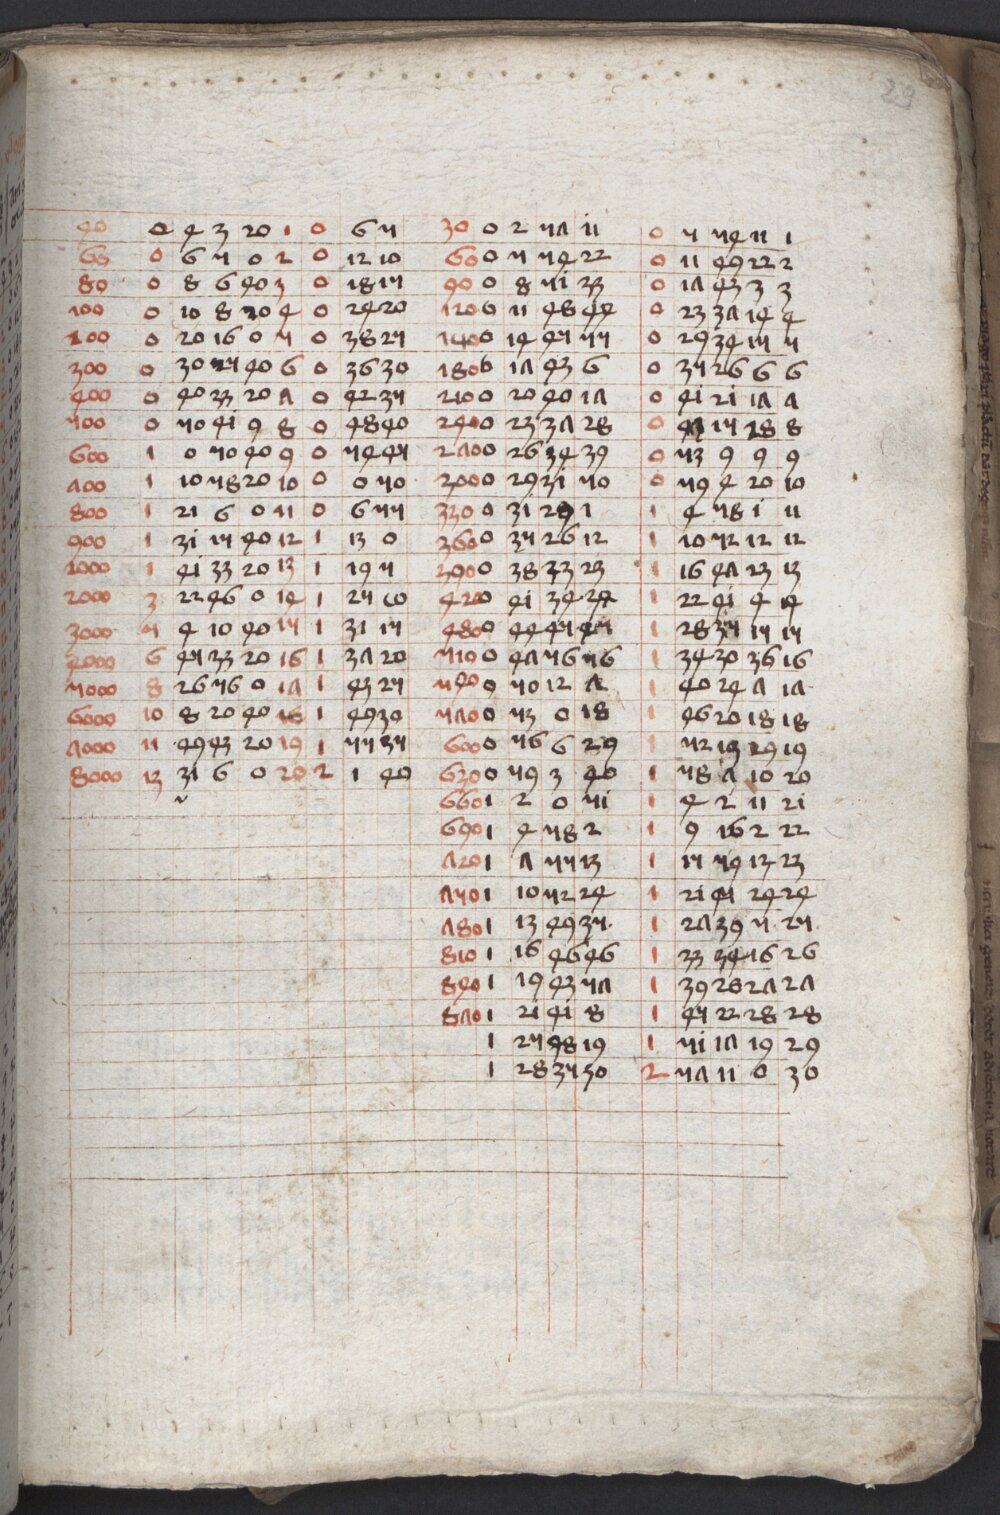 40 0 4 3 20 1 0 6 5 30 0 2 57 11 0 5 54 11 1
60 0 6 5 0 2 0 12 10 60 0 5 54 22 0 11 49 22 2
80 0 8 6 40 3 0 18 15 90 0 8 51 33 0 17 43 3 3
100 0 10 8 20 4 0 24 20 120 0 11 48 44 0 23 37 14 4
200 0 20 16 0 5 0 38 25 150 0 14 45 55 0 29 34 15 5
300 0 30 25 40 6 0 36 30 180 0 17 43 6 0 35 26 6 6
400 0 40 33 20 7 0 42 35 210 0 20 40 17 0 41 21 17 7
500 0 50 41 9 8 0 48 40 240 0 23 37 28 0 47 15 28 8
600 1 0 50 40 9 0 54 45 270 0 26 34 39 0 53 9 9 9
700 1 10 58 20 10 0 0 50 300 0 29 31 50 0 59 4 20 10
800 1 21 6 0 11 0 6 55 330 0 31 29 1 1 4 58 1 11
900 1 31 15 40 12 1 13 0 360 0 35 26 12 1 10 52 12 12
1000 1 41 33 20 13 1 19 5 390 0 38 23 23 1 16 47 23 13
2000 3 22 46 0 14 1 25 10 420 0 41 34 1 22 41 4 14
3000 5 4 10 40 15 1 31 15 480 0 44 45 45 1 28 35 15 15
4000 6 45 33 20 16 1 37 20 510 0 47 56 56 1 34 30 36 16
5000 8 26 56 0 17 1 43 25 540 0 50 12 7 1 40 24 7 17
6000 10 8 20 40 18 1 49 30 570 0 53 0 18 1 46 20 18 18
7000 11 49 43 20 19 1 55 35 600 0 56 6 29 1 52 13 29 19
8000 13 31 6 0 20 2 1 40 630 0 59 3 40 1 58 7 10 20
660 1 2 0 51 1 4 2 11 21
690 1 4 58 2 1 9 16 2 22
720 1 7 55 13 1 15 59 13 23
750 1 10 52 24 1 21 51 24 24
780 1 13 49 35 1 27 39 5 25
810 1 16 46 46 1 33 34 16 26
840 1 19 43 57 1 39 28 27 27
870 1 21 41 8 1 45 22 28 28
1 25 48 19 1 51 17 19 29
1 28 35 30 2 57 11 0 30
29